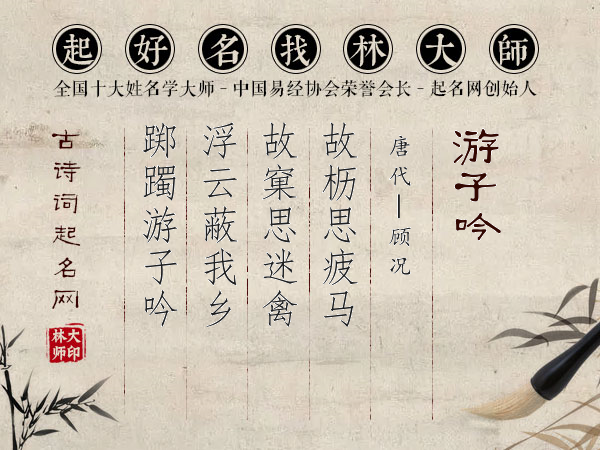 起好名找林大師
全国十大姓名学大师 - 中国易经协会荣誉会长 - 起名网创始人
游子吟
唐代—顾况
故枥思疲马
故窠思迷禽
浮云蔽我乡
踯躅游子吟
古诗词起名网
大印
林师